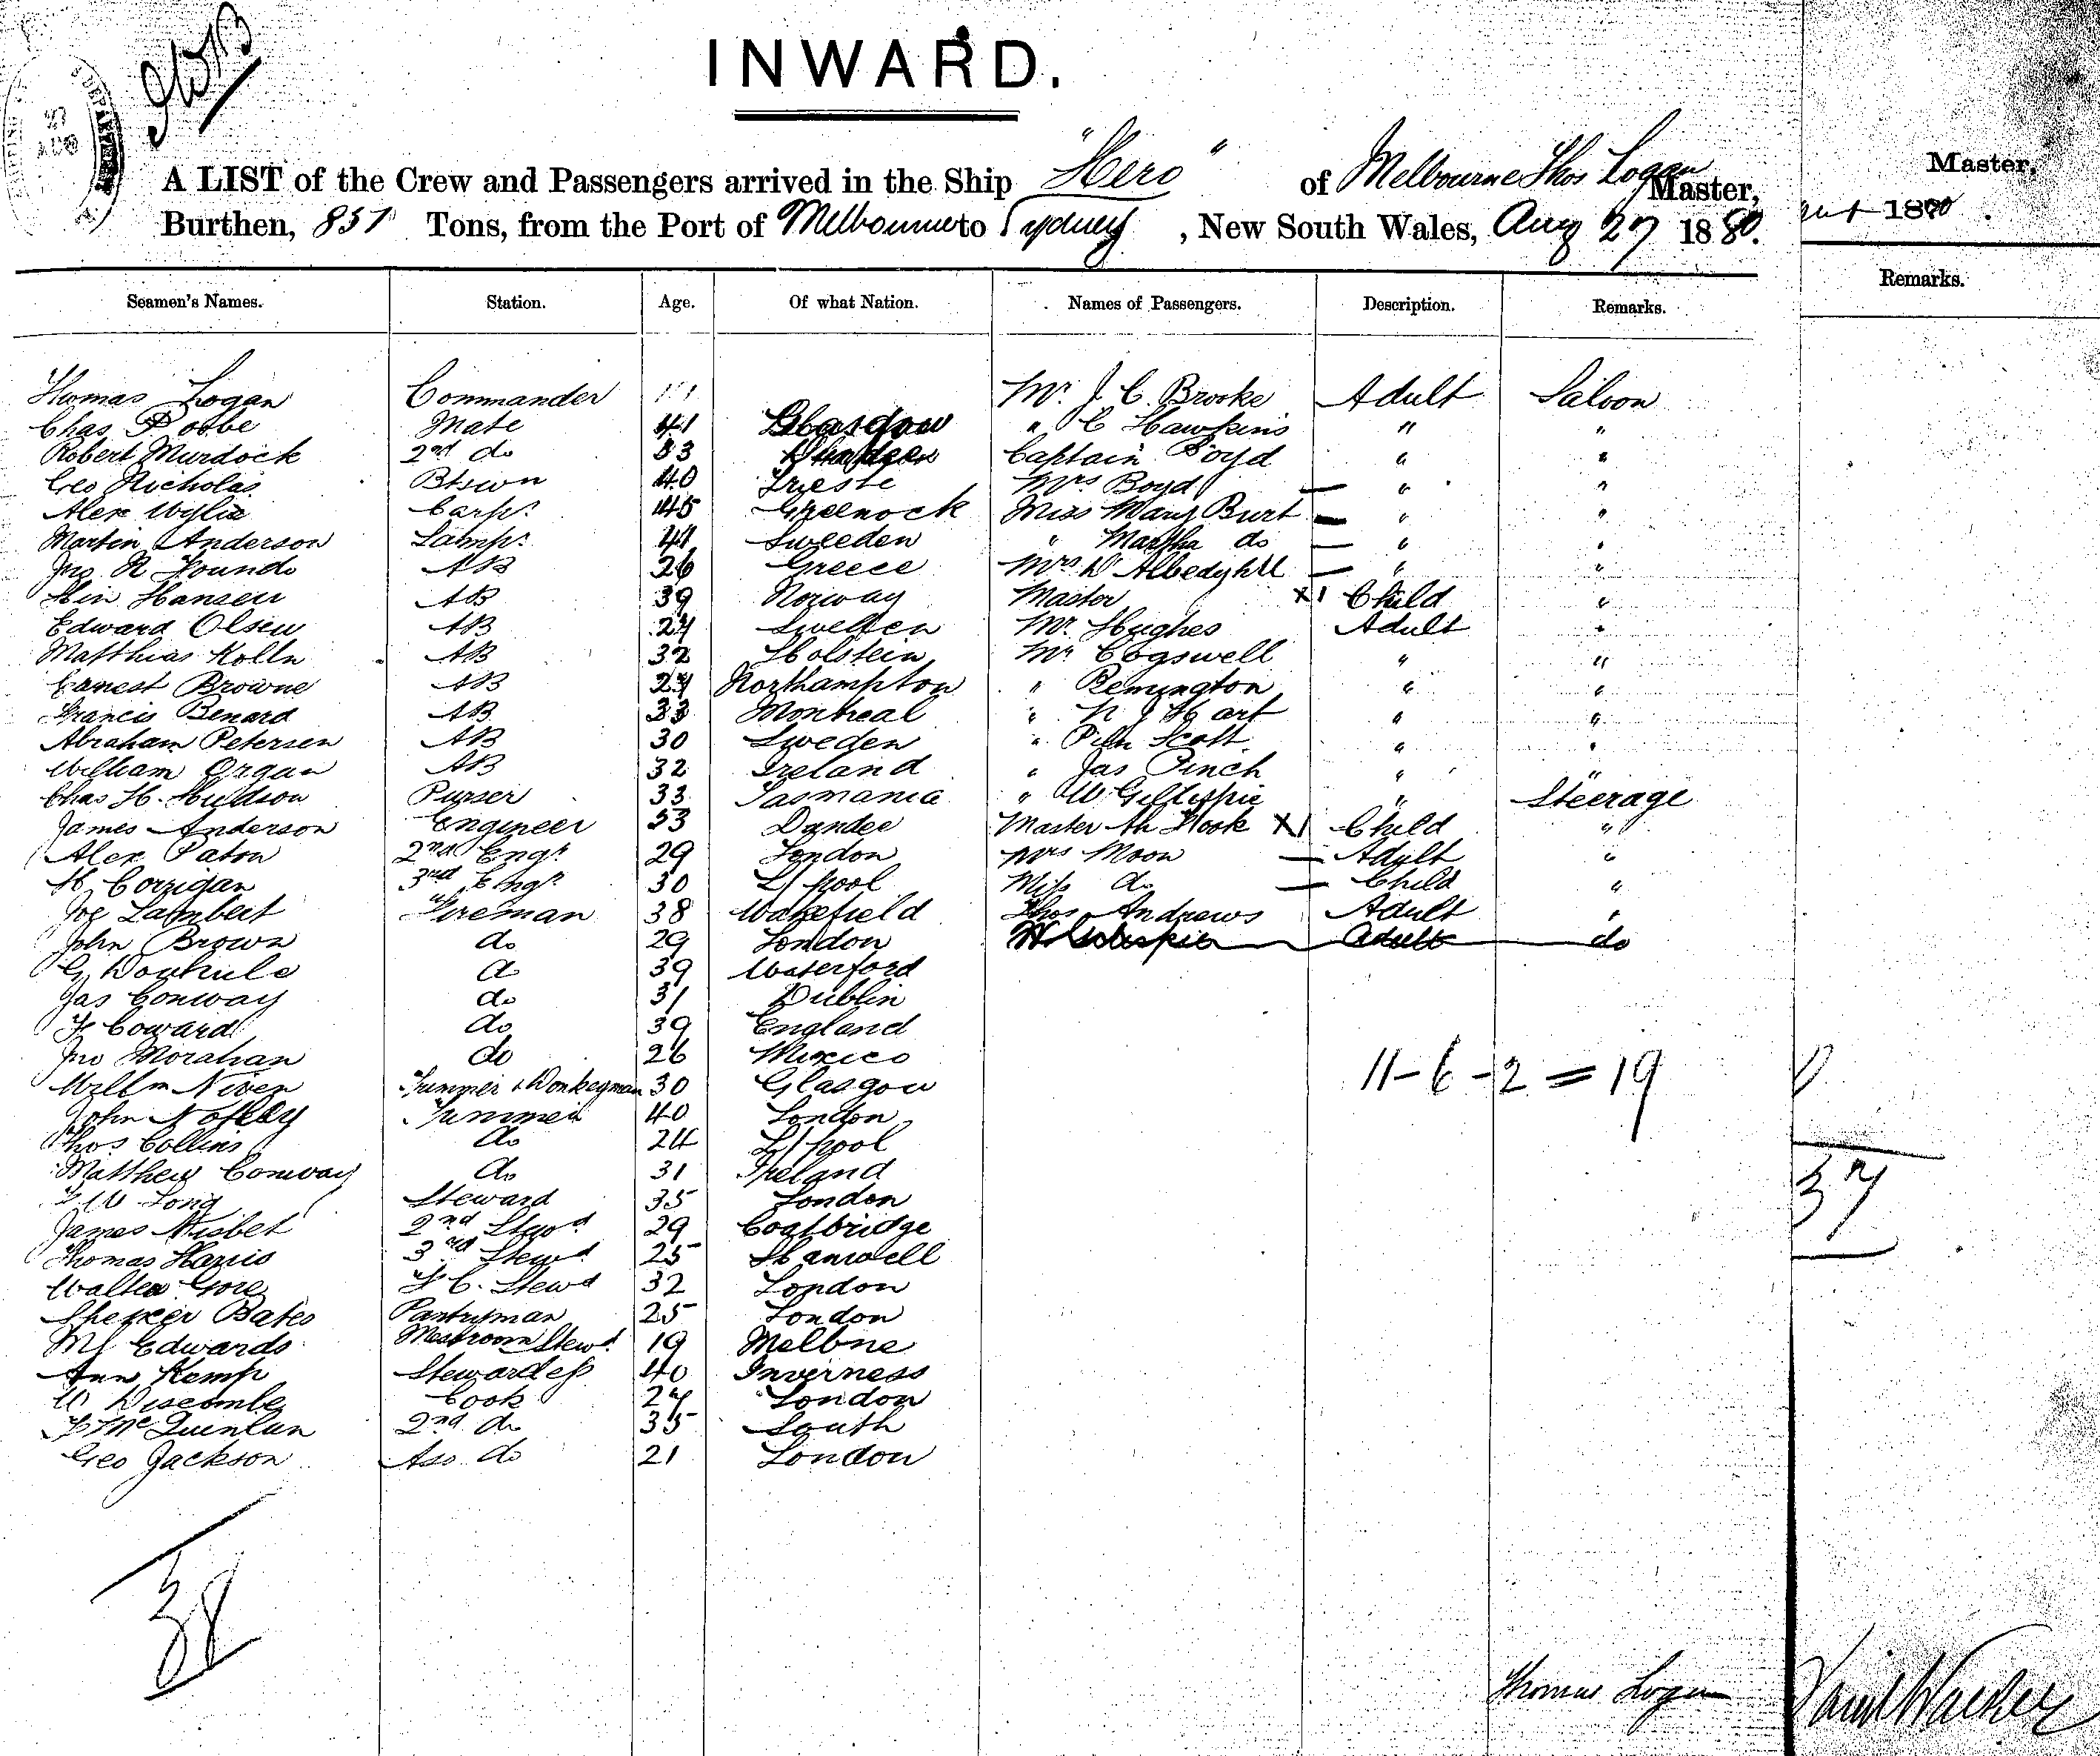 INWARD.
A LIST of the Crew and Passengers arrived in the Ship "Hero" of Melbourne Thos Logan Master,
Burthen, 851 Tons, from the Port of Melbourne to Sydney, New South Wales, Aug 27 1880.
Master,
1880
Remarks.
Seamen's Names. Station. Age. Of what Nation. Names of Passengers. Description. Remarks.
Thomas Logan Commander Mr. J. C. Brooke Adult Saloon
Chas Mate 41 Glasgow " C Hawkins " "
Robert Murdock 2nd do 33 Captain Boyd " "
Geo Nicholas Btswn 40 Trieste Mrs Boyd — " "
Alex Wylie Carpr 45 Greenock Miss Mary Burt — " "
Martin Anderson Lampr 41 Sweeden " Martha do — " "
Jno R Pounds AB 26 Greece Mrs D Albedyhll — " "
Hansen AB 39 Norway Master X1 Child "
Edward Olsen AB 27 Sweeden Mr. Hughes Adult "
Matthias Kolln AB 32 Holstein Mr Cogswell " "
Earnest Browne AB 24 Northampton " Remington " "
Francis Benard AB 33 Montreal " N J Hart " "
Abraham Petersen AB 30 Sweden " Scott " "
William Organ AB 32 Ireland " Jas Finch " "
Chas H. Hudson Purser 33 Tasmania " W Gillespie " Steerage
James Anderson Engineer 53 Dundee Master Hook X1 Child "
Alex Paton 2nd Engr 29 London Mrs Moon — Adult "
H. Corrigan 3rd Engr 30 L'pool Miss do — Child "
Joe Lambert Fireman 38 Wakefield Thos Andrews Adult "
John Brown do 29 London W Gillespie Adult do
G do 39 Waterford
Jas Conway do 31 Dublin
F Coward do 39 England
Jno Morahan do 26 Mexico
Willm Niven Trimmer & Donkeyman 30 Glasgow
John Trimmer 40 London
Thos Collins do 24 L'pool
Matthew Conway do 31 Ireland
Long Steward 35 London
James Nisbet 2nd Stewd 29 Coatbridge
Thomas Harris 3rd Stewd 25 Hanwell
Walter Gore F C. Stewd 32 London
Spencer Bates Pantryman 25 London
Ml Edwards Messroom Stewd 19 Melbne
Ann Kemp Stewardess 40 Inverness
W Discombe Cook 27 London
F McQuinlan 2nd do 35 South
Geo Jackson Ass do 21 London
11-6-2=19
37
38
Thomas Logan